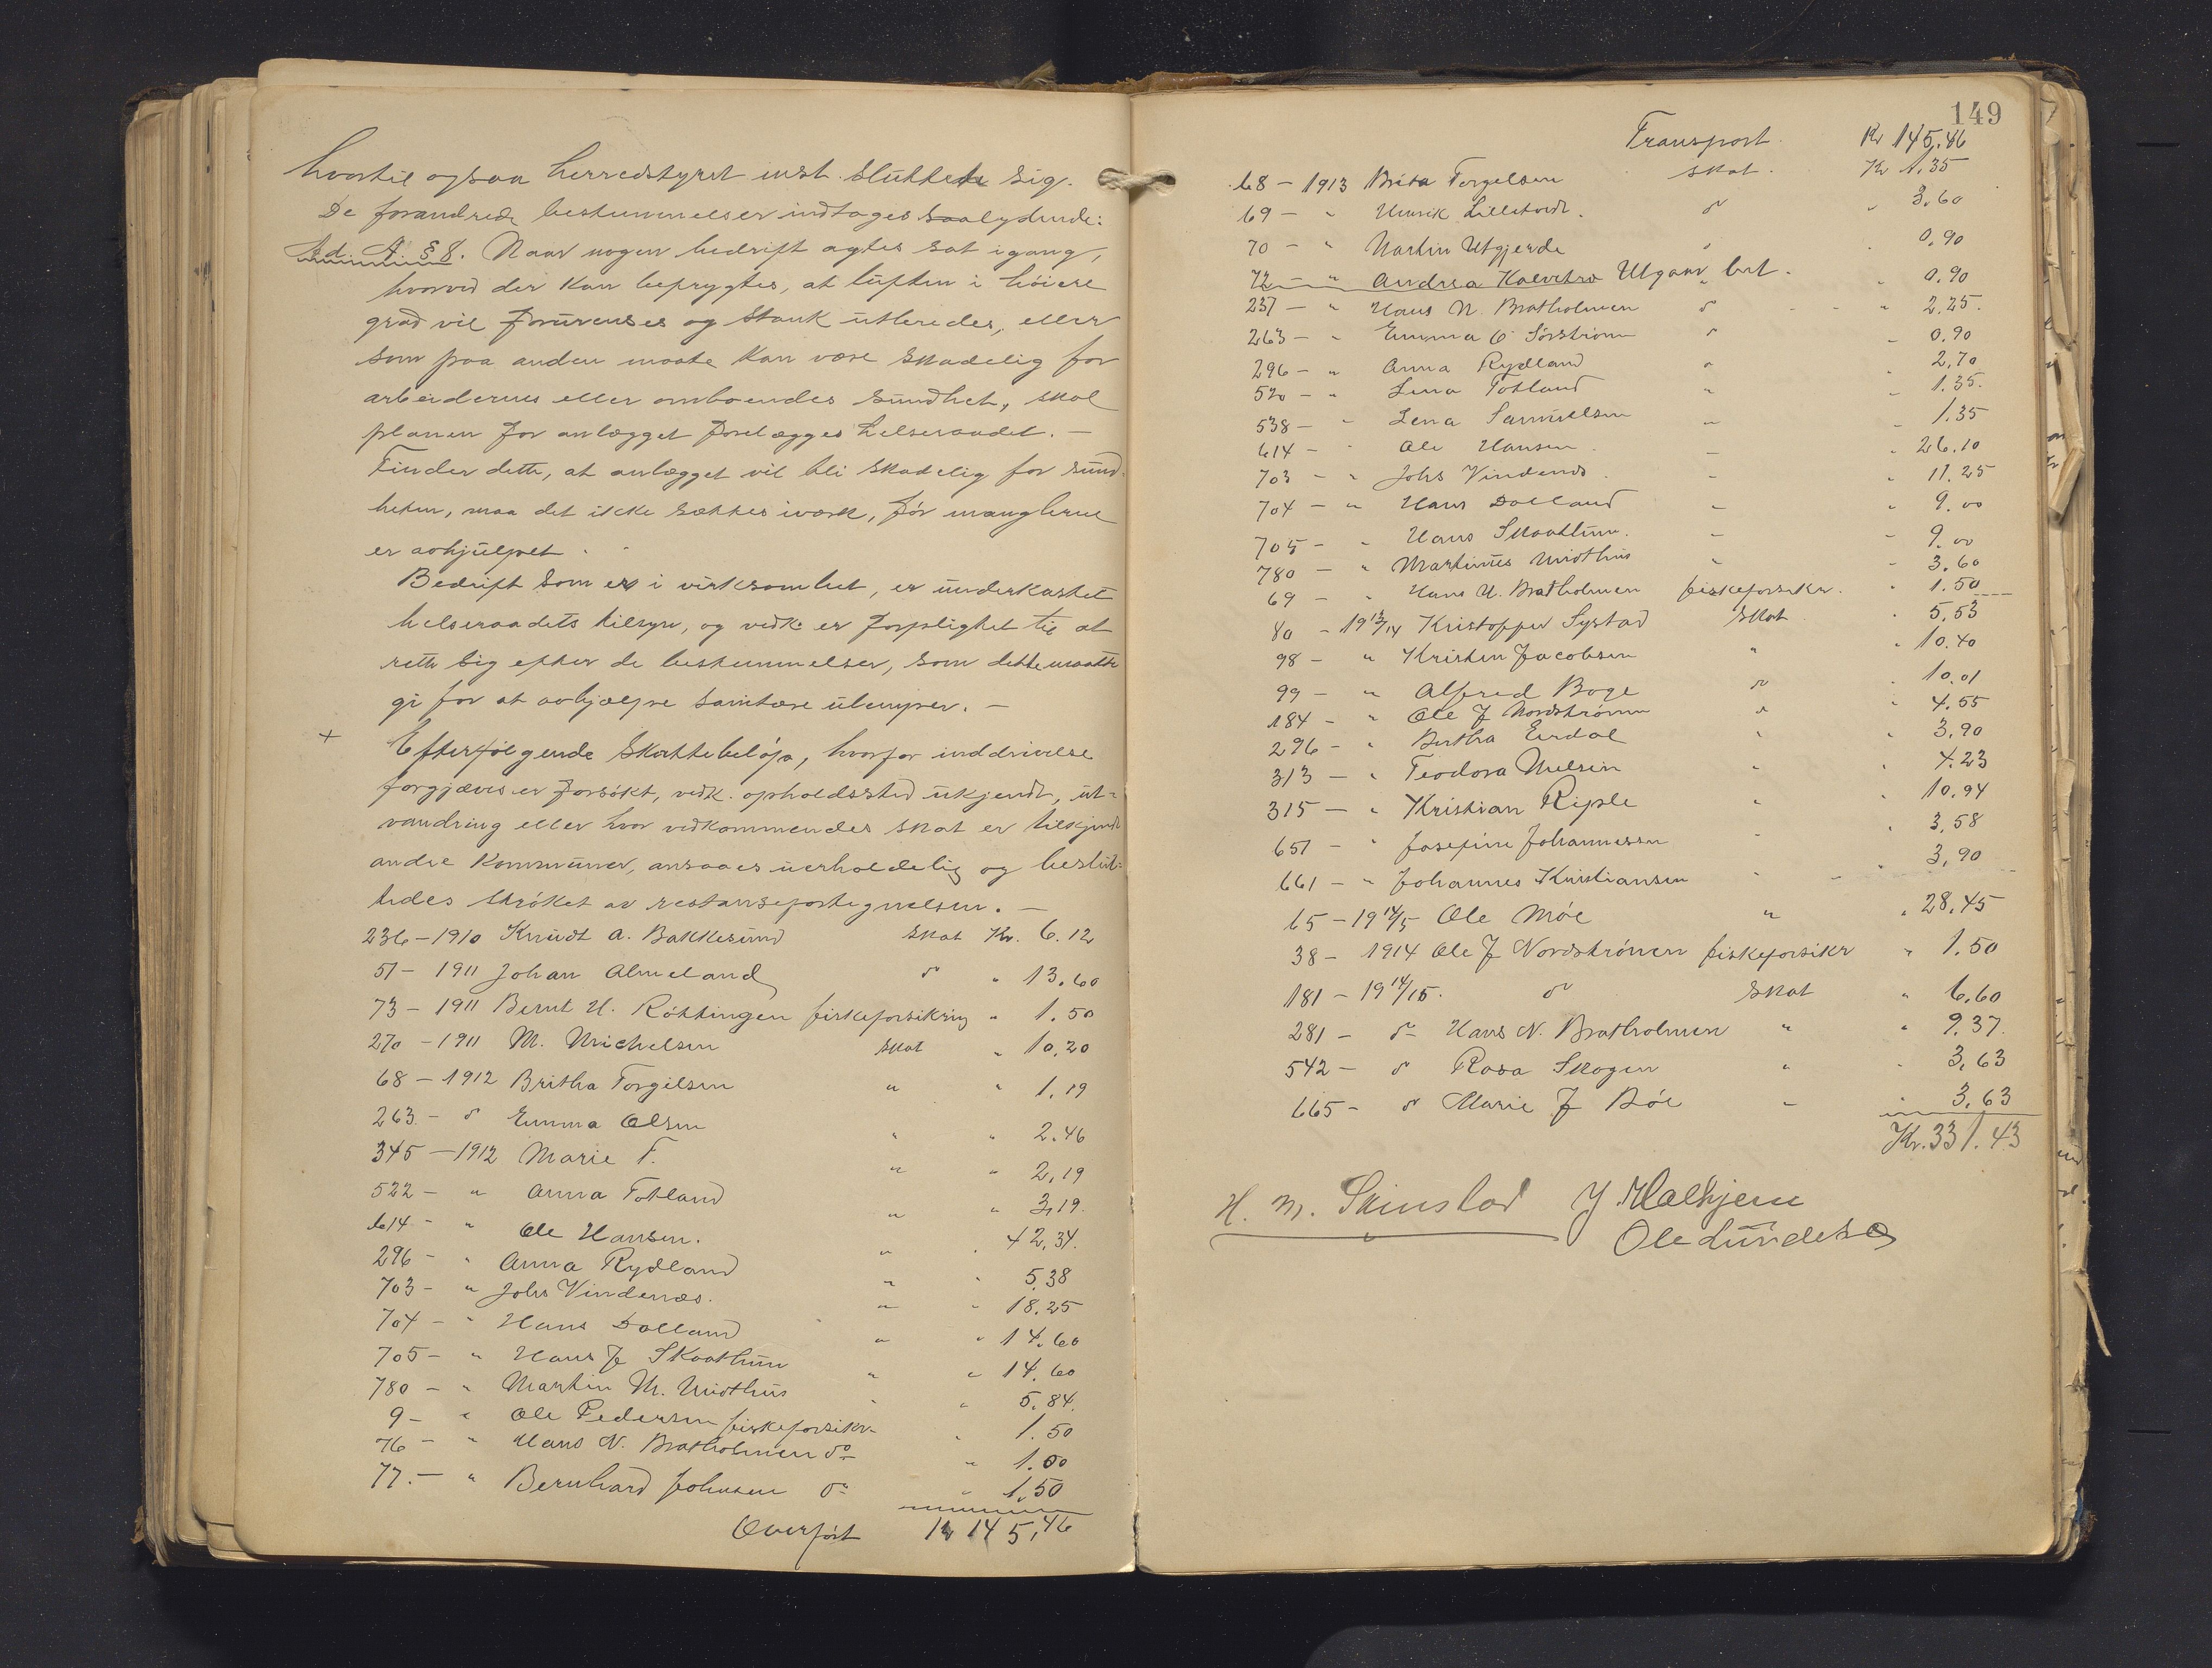 hvortil ogsaa herredstyret inst. sluttede sig.
De forandrede bestemmelser indtages saalydende:
Ad. A. § 8. Naar nogen bedrift agtes sat igang,
hvorved der kan befrygtes, at luften i höiere
grad vil forurenses og stank utbredes, eller
som paa anden maate kan være skadelig for
arbeidernes eller omboendes sundhet, skal
planen for anlægget forelægges helseraadet. —
Finder dette, at anlægget vil bli skadelig for sund-
heten, maa det ikke sættes iverk, för manglerne
er avhjulpet.
Bedrift som er i virksomhet, er underkastet
helseraadets tilsyn, og vedk. er forpligtet til at
rette sig efter de bestemmelser, som dette maatte
gi for at avhjælpe sanitære ulemper. —
+ Efterfölgende skattebelöp, hvorfor inddrivelse
forgjæves er forsökt, vedk. opholdssted ukjendt, ut-
vandring eller hvor vedkommendes skat er tilkjendt
andre kommuner, ansaaes uerholdelig og beslut-
tedes ströket av restansefortegnelsen. —
236 - 1910 Knudt A. Bakkesund skat Kr. 6.12
51 - 1911 Johan Almeland do " 13.60
73 - 1911 Bernt H. Röttingen fiskeforsikring " 1.50
270 - 1911 M. Michelsen skat " 10.20
68 - 1912 Britha Torgilsen " " 1.19
263 - do Emma Olsen " " 2.46
345 - 1912 Marie F. " " 2.19
522 - " Anna Totland " " 3.19
614 - " Ole Hansen. " " 42.34
296 - " Anna Rydland " " 5.38
703 - " Johs Vindenæs. " " 18.25
704 - " Hans Dolland " " 14.60
705 - " Hans J Skaathun " " 14.60
780 - " Martin M. Midthus " " 5.84
9 - " Ole Pedersen fiskeforsikr. " 1.50
76 - " Hans N. Bratholmen do " 1.00
77. - " Bernhard Johnsen do " 1.50
Overfört Kr 145.46
149
Transport. Kr 145.46
68 - 1913 Brita Torgelsen skat. Kr 1.35
69 - " Henrik Lilletvedt. do " 3.60
70 - " Martin Utgjerde " 0.90
72 - " Andrea Kalvetræ Utgaar, bet. " 0.90
237 - " Hans N. Bratholmen do " 2.25
263 - " Emma O Sörström do " 0.90
296 - " Anna Rydland " " 2.70
520 - " Lina Totland " " 1.35
538 - " Lena Samuelsen " " 1.35
614 - " Ole Hansen " " 26.10
703 - " Johs Vindenes " " 11.25
704 - " Hans Dolland " " 9.00
705 - " Hans Skaathun. " " 9.00
780 - " Martinus Midthus " " 3.60
69 - " Hans N. Bratholmen fiskeforsikr. " 1.50
80 - 1913/14 Kristoffer Systad skat " 5.53
98 - " Kristen Jacobsen " " 10.40
99 - " Alfred Boge do " 10.01
184 - " Ole J Nordströnen " " 4.55
296 - " Bertha Eirdal " " 3.90
313 - " Teodora Nielsen " " 4.23
315 - " Kristian Riple " " 10.94
651 - " Josefine Johannessen " " 3.58
661 - " Johannes Kristiansen " " 3.90
65 - 1914/5 Ole Möe " " 28.45
38 - 1914 Ole J Nordströnen fiskeforsikr " 1.50
181 - 1914/15. do skat " 6.60
281 - do Hans N. Bratholmen " " 9.37
542 - do Rosa Skogen " " 3.63
665 - do Marie J Böe " " 3.63
Kr. 331.43
H. M. Skinstad J Halhjem
Ole Lundetræ